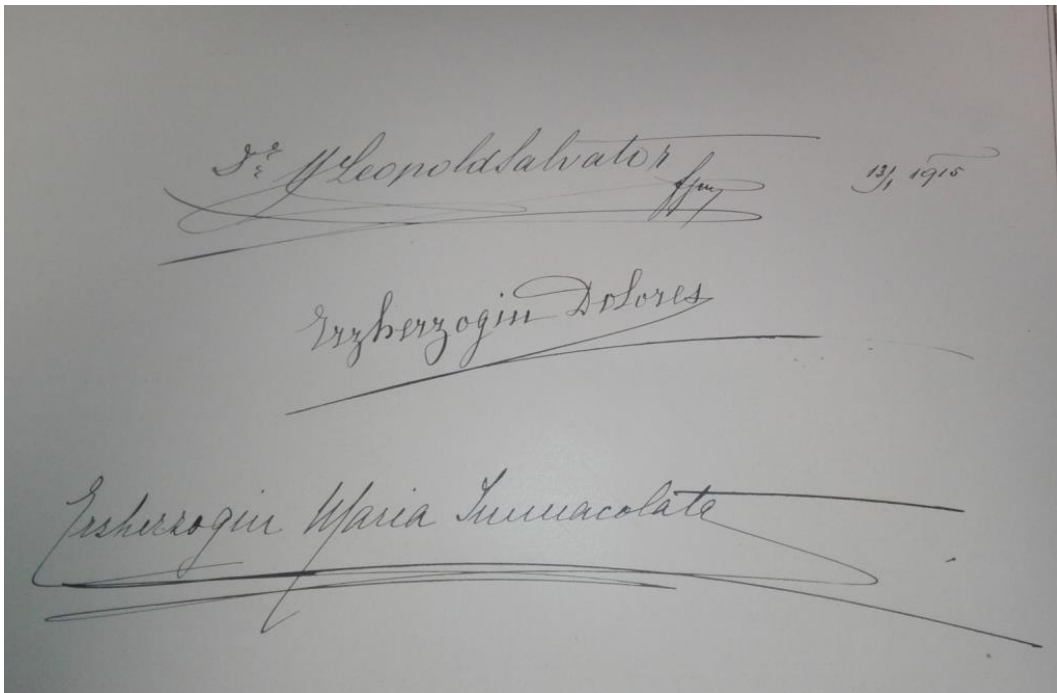 Dr. Leopold Salvator 13/1 1915
Erzherzogin Dolores
Erzherzogin Maria Immacolata